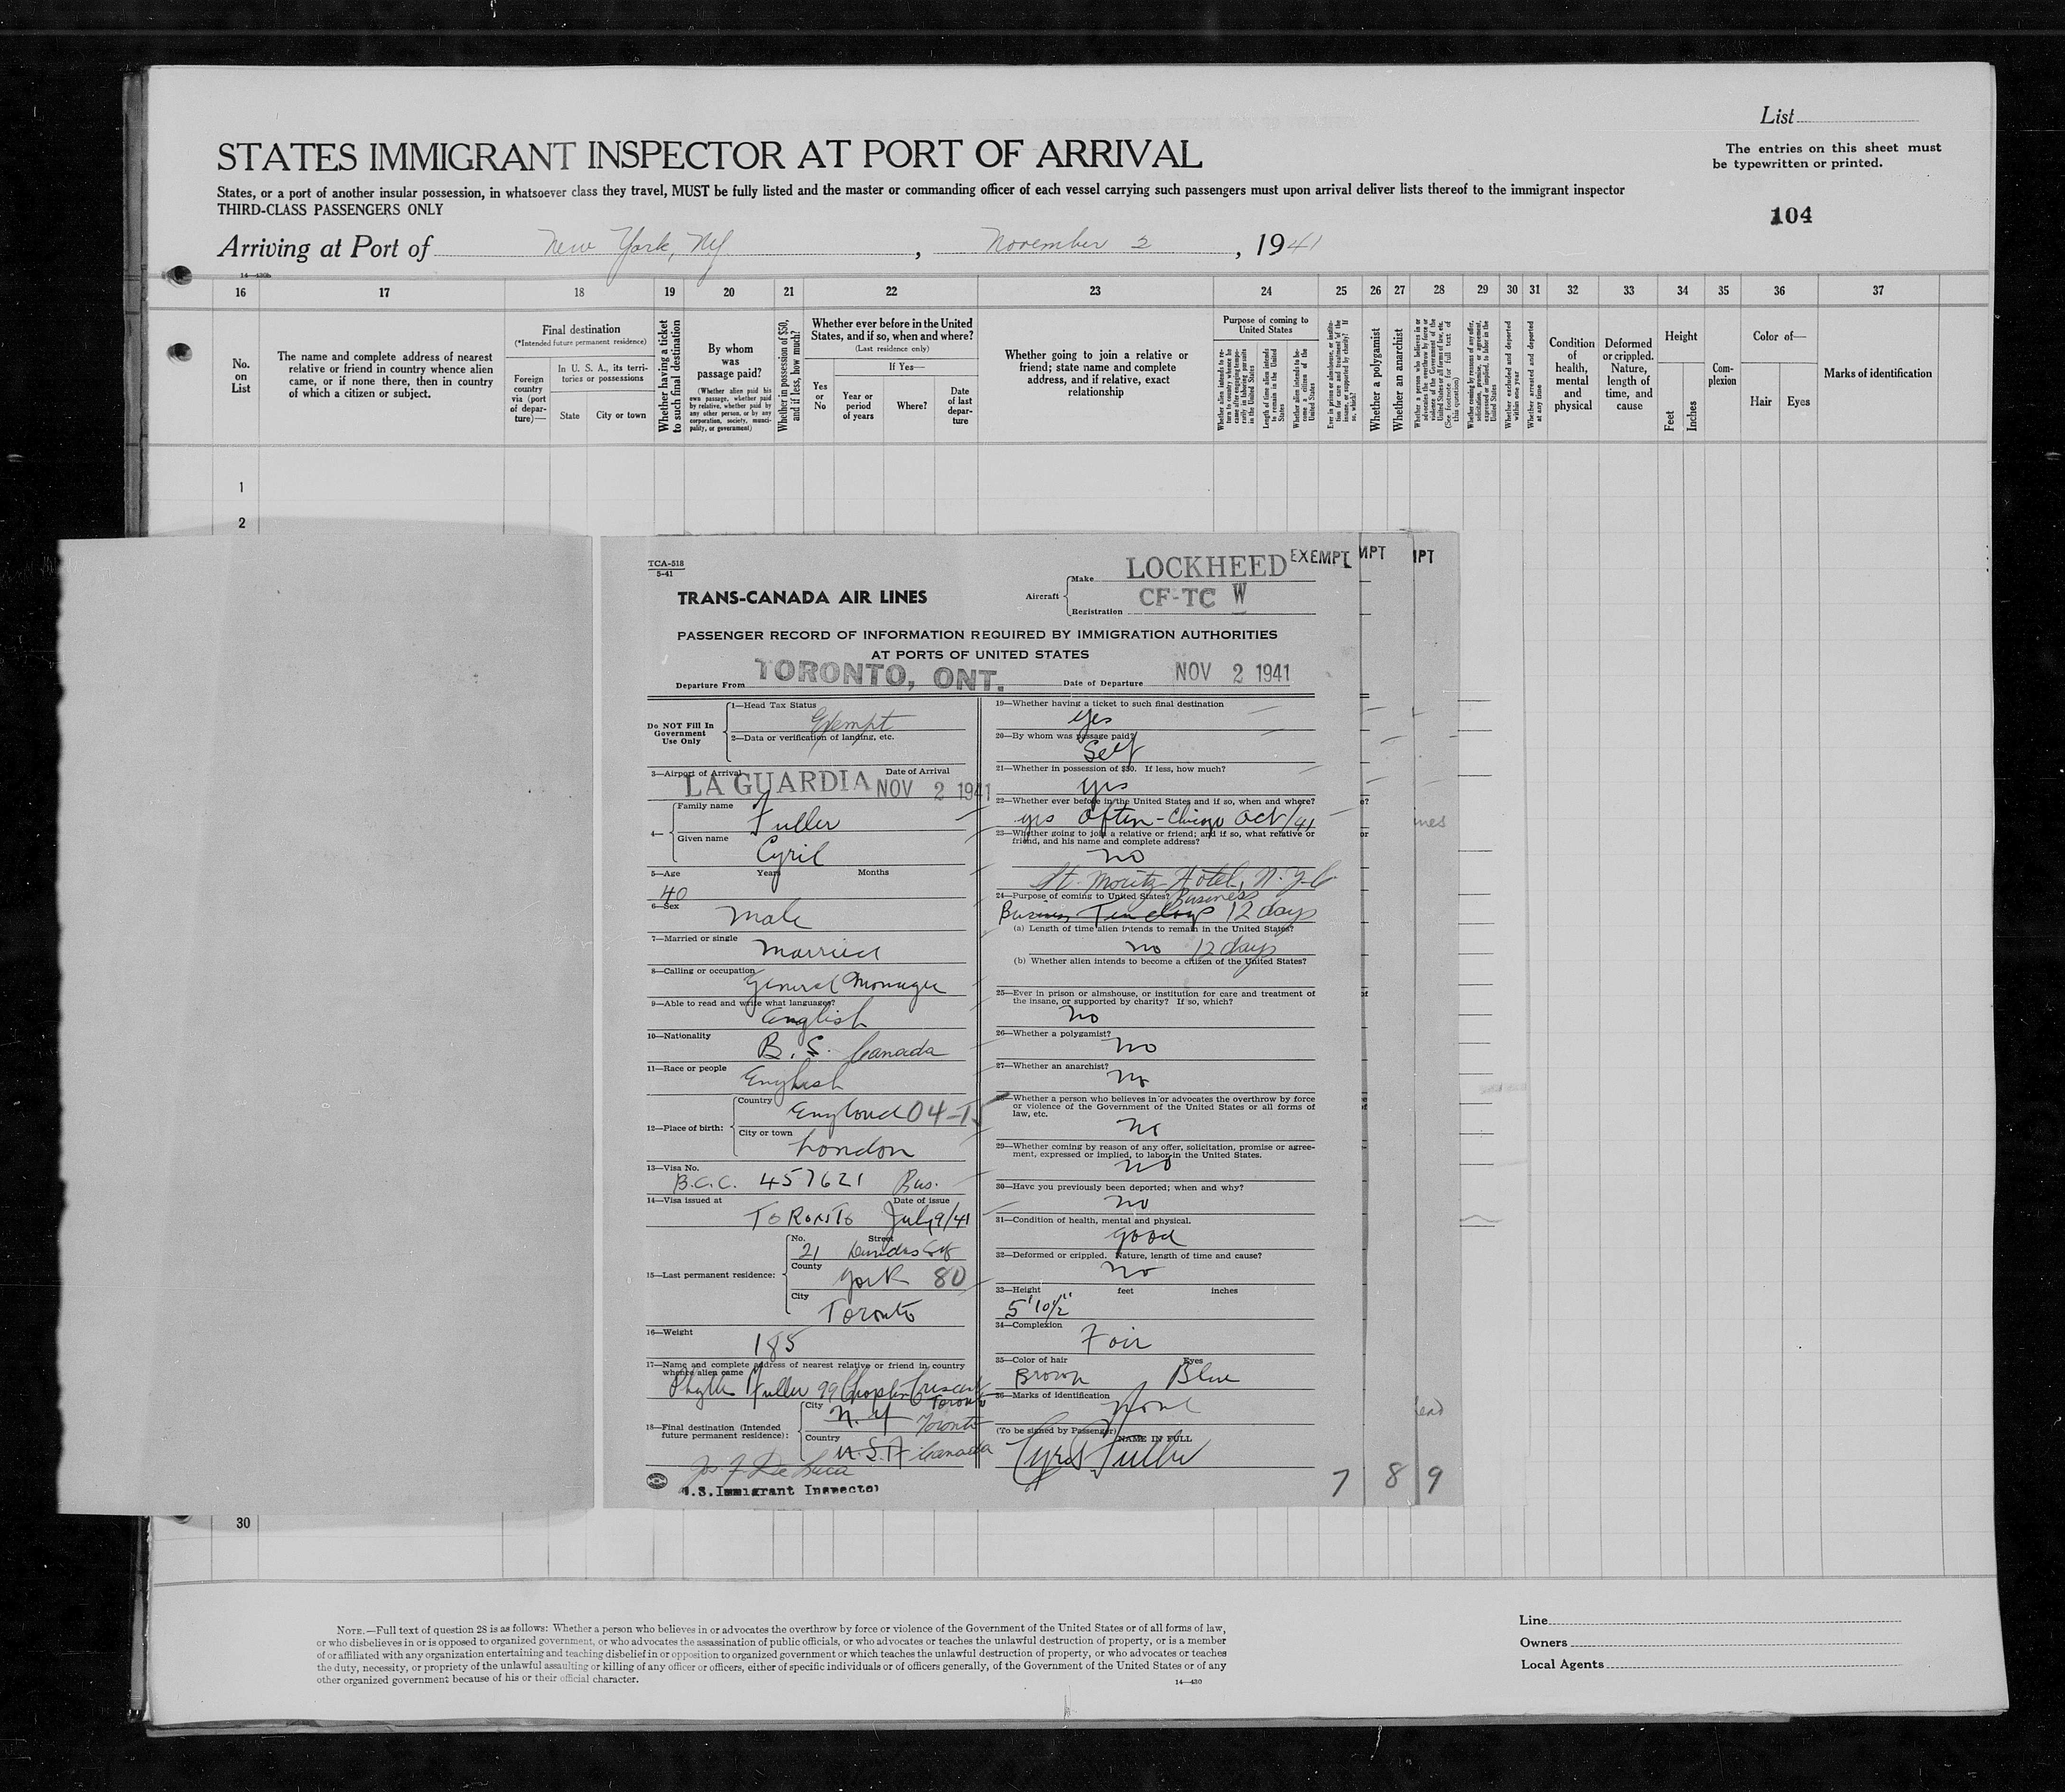 List
The entries on this sheet must
be typewritten or printed.
STATES IMMIGRANT INSPECTOR AT PORT OF ARRIVAL
States, or a port of another insular possession, in whatsoever class they travel, MUST be fully listed and the master or commanding officer of each vessel carrying such passengers must upon arrival deliver lists thereof to the immigrant inspector
THIRD-CLASS PASSENGERS ONLY
104
Arriving at Port of New York, NY, November 2, 1941
14—430b
16 17 18 19 20 21 22 23 24 25 26 27 28 29 30 31 32 33 34 35 36 37
No. on List
The name and complete address of nearest relative or friend in country whence alien came, or if none there, then in country of which a citizen or subject.
Final destination
(*Intended future permanent residence)
Foreign country via (port of departure)—
In U. S. A., its territories or possessions
State
City or town
Whether having a ticket to such final destination
By whom was passage paid?
(Whether alien paid his own passage, whether paid by relative, whether paid by any other person, or by any corporation, society, municipality, or government)
Whether in possession of $50, and if less, how much?
Whether ever before in the United States, and if so, when and where?
(Last residence only)
Yes or No
If Yes—
Year or period of years
Where?
Date of last departure
Whether going to join a relative or friend; state name and complete address, and if relative, exact relationship
Purpose of coming to United States
Whether alien intends to return to country whence he came after engaging temporarily in laboring pursuits in the United States
Length of time alien intends to remain in the United States
Whether alien intends to become a citizen of the United States
Ever in prison or almshouse, or institution for care and treatment of the insane, or supported by charity? If so, which?
Whether a polygamist
Whether an anarchist
Whether a person who believes in or advocates the overthrow by force or violence of the Government of the United States or all forms of law, etc. (See footnote for full text of this question)
Whether coming by reason of any offer, solicitation, promise, or agreement, expressed or implied, to labor in the United States
Whether excluded and deported within one year
Whether arrested and deported at any time
Condition of health, mental and physical
Deformed or crippled. Nature, length of time, and cause
Height
Feet
Inches
Complexion
Color of—
Hair
Eyes
Marks of identification
1
2
TCA-518
5-41
TRANS-CANADA AIR LINES
Aircraft
Make LOCKHEED
Registration CF-TC W
EXEMPT MPT IPT
PASSENGER RECORD OF INFORMATION REQUIRED BY IMMIGRATION AUTHORITIES
AT PORTS OF UNITED STATES
Departure From TORONTO, ONT. Date of Departure NOV 2 1941
Do NOT Fill In
Government
Use Only
1—Head Tax Status
Exempt
2—Data or verification of landing, etc.
3—Airport of Arrival Date of Arrival
LA GUARDIA NOV 2 1941
4—
Family name
Fuller
Given name
Cyril
5—Age Years Months
40
6—Sex
Male
7—Married or single
Married
8—Calling or occupation
General Manager
9—Able to read and write what languages?
English
10—Nationality
B. S. Canada
11—Race or people
English
12—Place of birth:
Country
England 04-T5
City or town
London
13—Visa No.
B.C.C. 457621 Bus.
14—Visa issued at Date of issue
TORONTO July 9/41
15—Last permanent residence:
No. Street
21 Dundas Sq
County
York 80
City
Toronto
16—Weight
185
17—Name and complete address of nearest relative or friend in country
whence alien came
Phyllis Fuller 99 Chaplin Crescent
Toronto
18—Final destination (Intended
future permanent residence):
City
N. Y Toronto
Country
U.S.A Canada
Jos. F. De Luca
U.S.Immigrant Inspector
19—Whether having a ticket to such final destination
yes
20—By whom was passage paid?
Self
21—Whether in possession of $50. If less, how much?
yes
22—Whether ever before in the United States and if so, when and where?
yes often - Chicago Oct/41
23—Whether going to join a relative or friend; and if so, what relative or
friend, and his name and complete address?
no
St. Moritz Hotel, N.Y.C
24—Purpose of coming to United States? Business
Business Ten days 12 days
(a) Length of time alien intends to remain in the United States?
no 12 days
(b) Whether alien intends to become a citizen of the United States?
25—Ever in prison or almshouse, or institution for care and treatment of
the insane, or supported by charity? If so, which?
no
26—Whether a polygamist?
no
27—Whether an anarchist?
no
28—Whether a person who believes in or advocates the overthrow by force
or violence of the Government of the United States or all forms of
law, etc.
no
29—Whether coming by reason of any offer, solicitation, promise or agree-
ment, expressed or implied, to labor in the United States.
no
30—Have you previously been deported; when and why?
no
31—Condition of health, mental and physical.
good
32—Deformed or crippled. Nature, length of time and cause?
no
33—Height feet inches
5'10½"
34—Complexion
Fair
35—Color of hair Eyes
Brown Blue
36—Marks of identification
None
(To be signed by Passenger) NAME IN FULL
Cyril Fuller
7 8 9
30
NOTE.—Full text of question 28 is as follows: Whether a person who believes in or advocates the overthrow by force or violence of the Government of the United States or of all forms of law,
or who disbelieves in or is opposed to organized government, or who advocates the assassination of public officials, or who advocates or teaches the unlawful destruction of property, or is a member
of or affiliated with any organization entertaining and teaching disbelief in or opposition to organized government or which teaches the unlawful destruction of property, or who advocates or teaches
the duty, necessity, or propriety of the unlawful assaulting or killing of any officer or officers, either of specific individuals or of officers generally, of the Government of the United States or of any
other organized government because of his or their official character.
14—430
Line
Owners
Local Agents